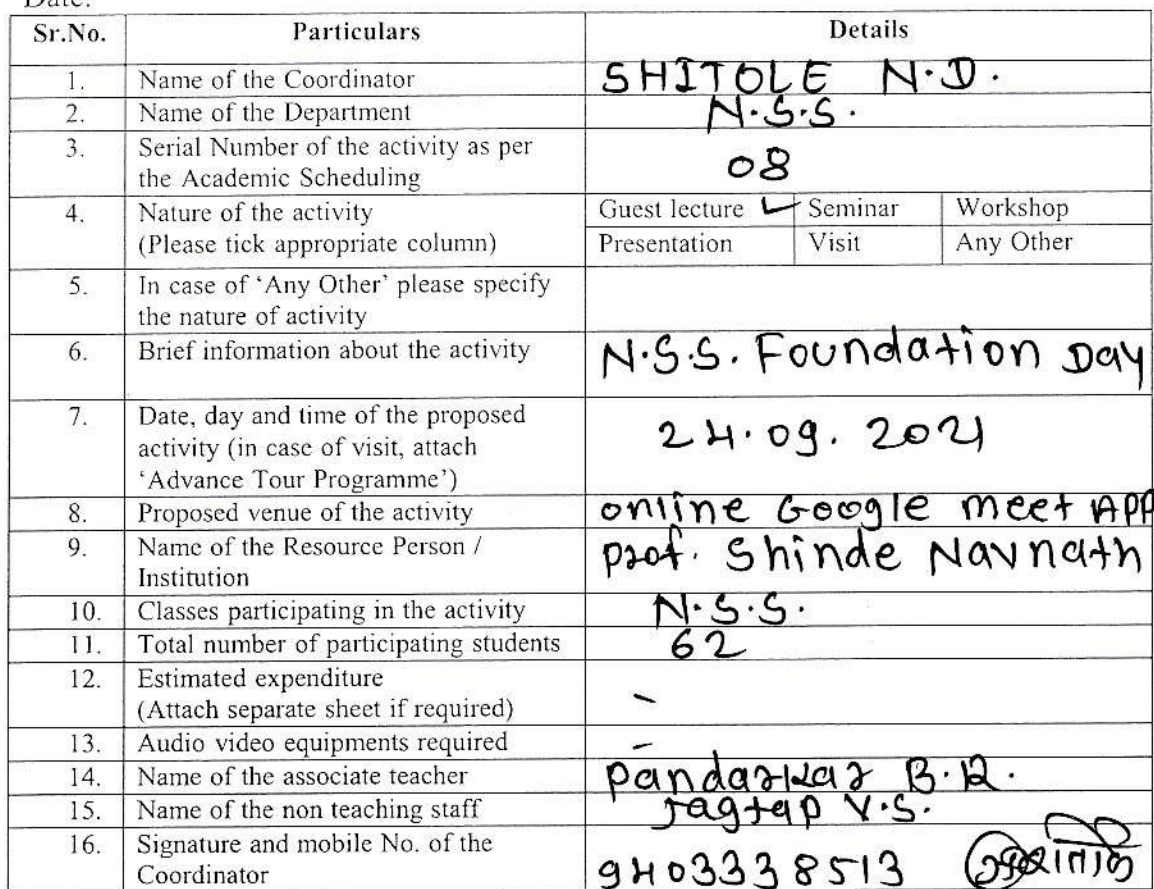 Date:
Sr.No. Particulars Details
1. Name of the Coordinator SHITOLE N.D.
2. Name of the Department N.S.S.
3. Serial Number of the activity as per
the Academic Scheduling 08
4. Nature of the activity Guest lecture ✓ Seminar Workshop
(Please tick appropriate column) Presentation Visit Any Other
5. In case of ‘Any Other’ please specify
the nature of activity
6. Brief information about the activity N.S.S. Foundation Day
7. Date, day and time of the proposed
activity (in case of visit, attach 24.09.2021
‘Advance Tour Programme’)
8. Proposed venue of the activity online Google meet APP
9. Name of the Resource Person / Prof. Shinde Navnath
Institution
10. Classes participating in the activity N.S.S.
11. Total number of participating students 62
12. Estimated expenditure
(Attach separate sheet if required) -
13. Audio video equipments required -
14. Name of the associate teacher Pandarkar B.R.
15. Name of the non teaching staff Jagtap V.S.
16. Signature and mobile No. of the
Coordinator 9403338513